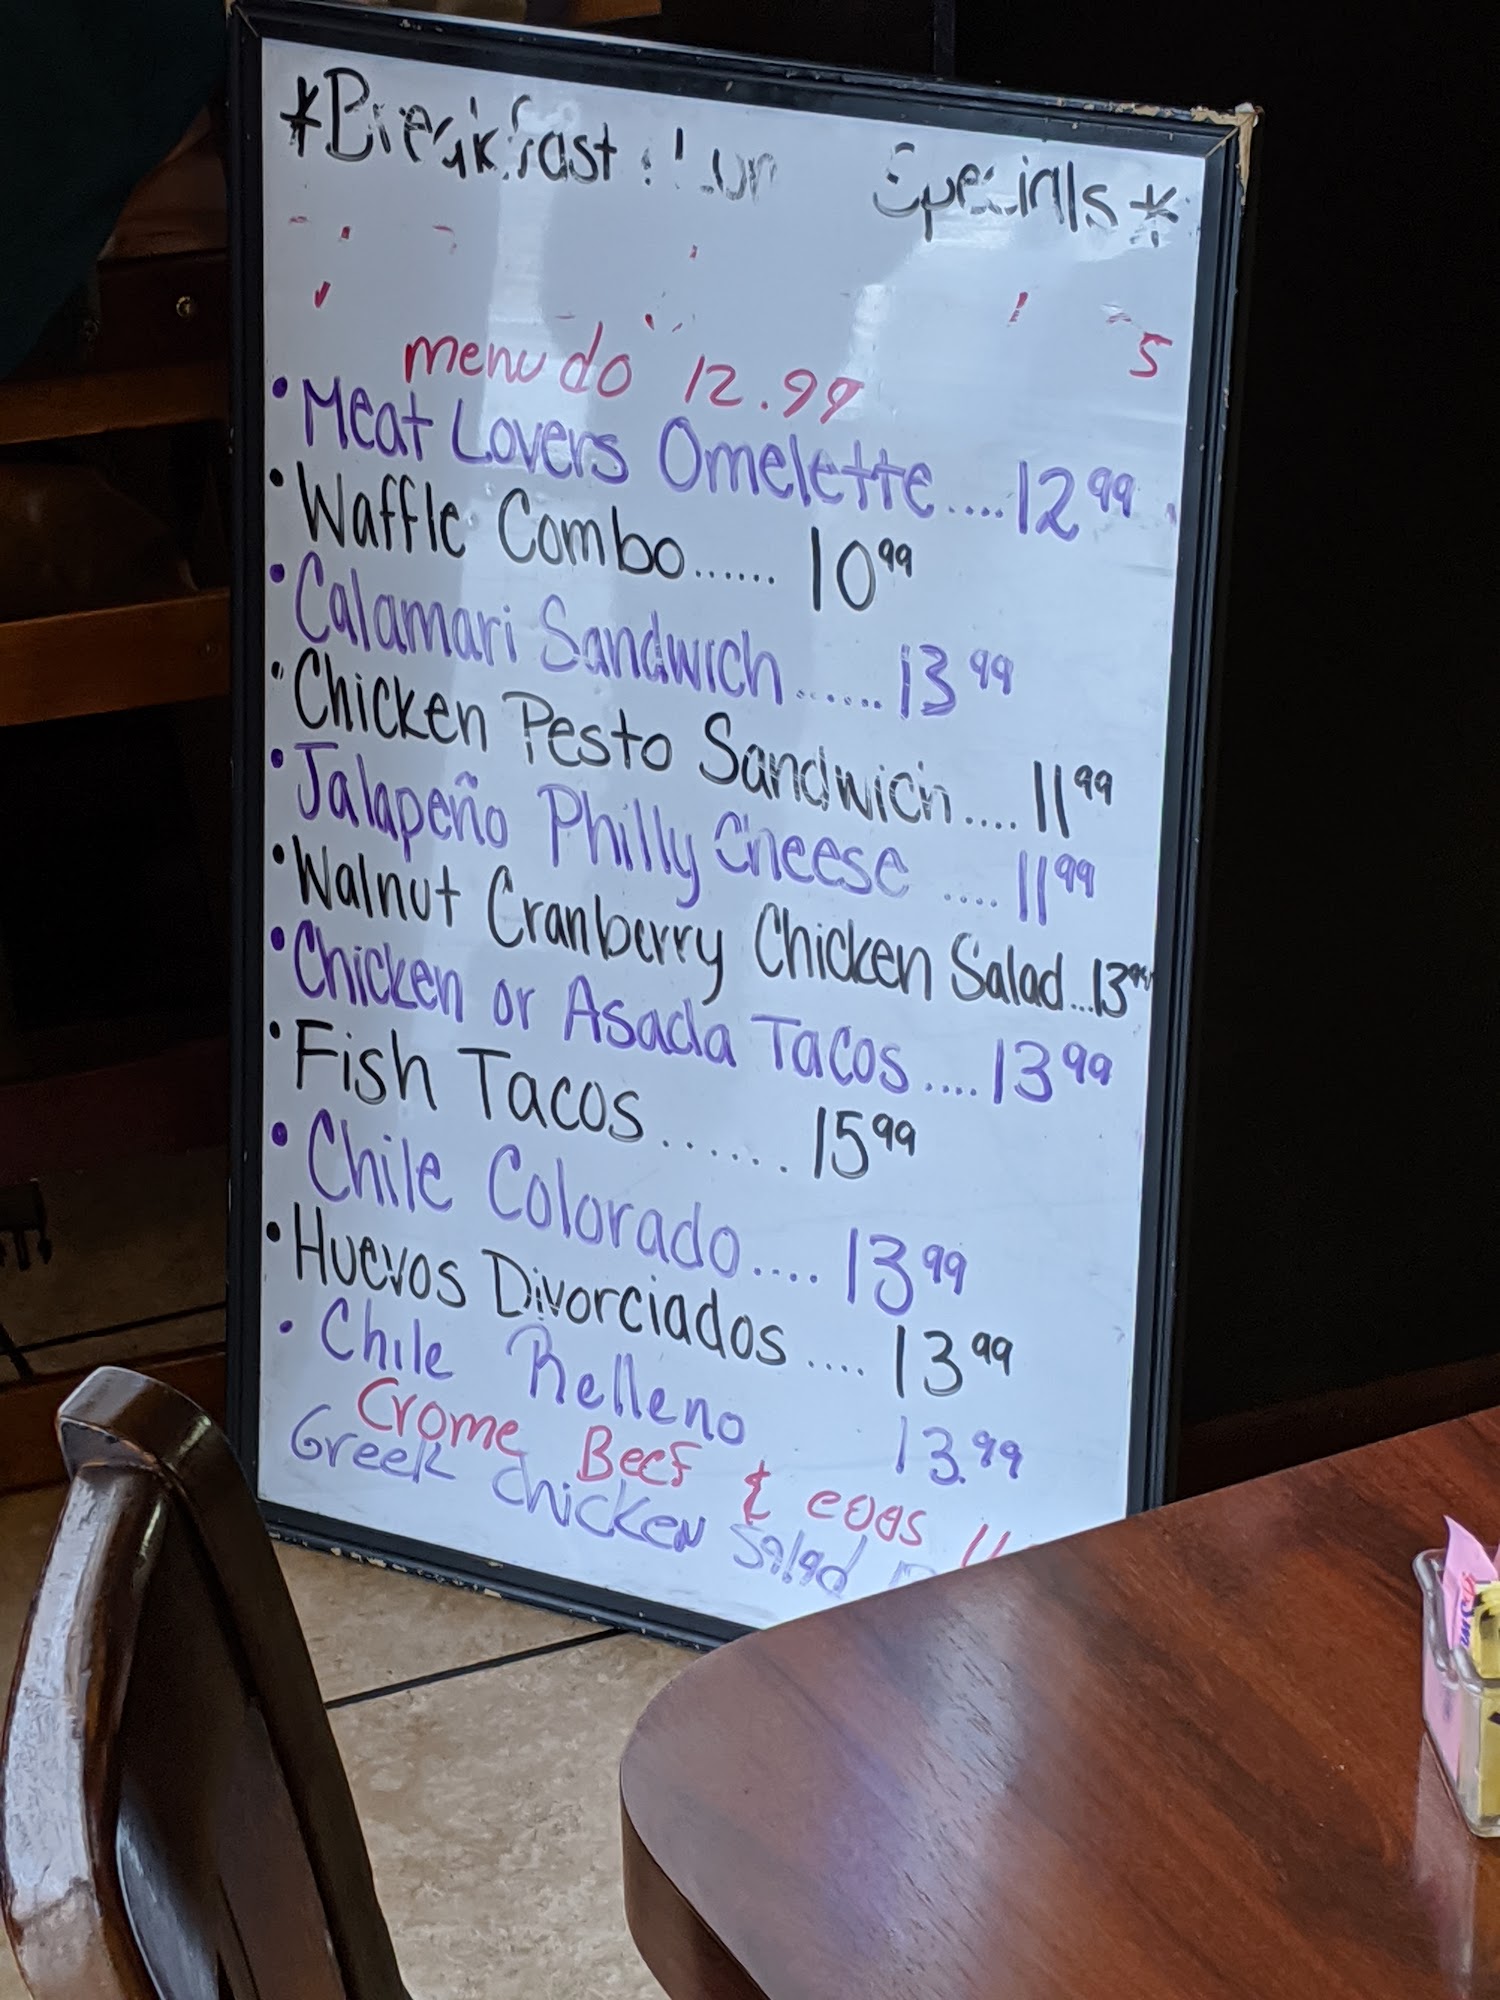 *Breakfast Specials*
5
menudo 12.99
• Meat Lovers Omelette....12⁹⁹
• Waffle Combo...... 10⁹⁹
• Calamari Sandwich...... 13⁹⁹
• Chicken Pesto Sandwich.... 11⁹⁹
• Jalapeño Philly Cheese .... 11⁹⁹
• Walnut Cranberry Chicken Salad...13⁹⁹
• Chicken or Asada Tacos....13⁹⁹
• Fish Tacos....... 15⁹⁹
• Chile Colorado.... 13⁹⁹
• Huevos Divorciados.... 13⁹⁹
• Chile Relleno 13.99
Crome Beef & eggs
Greek chicken Salad